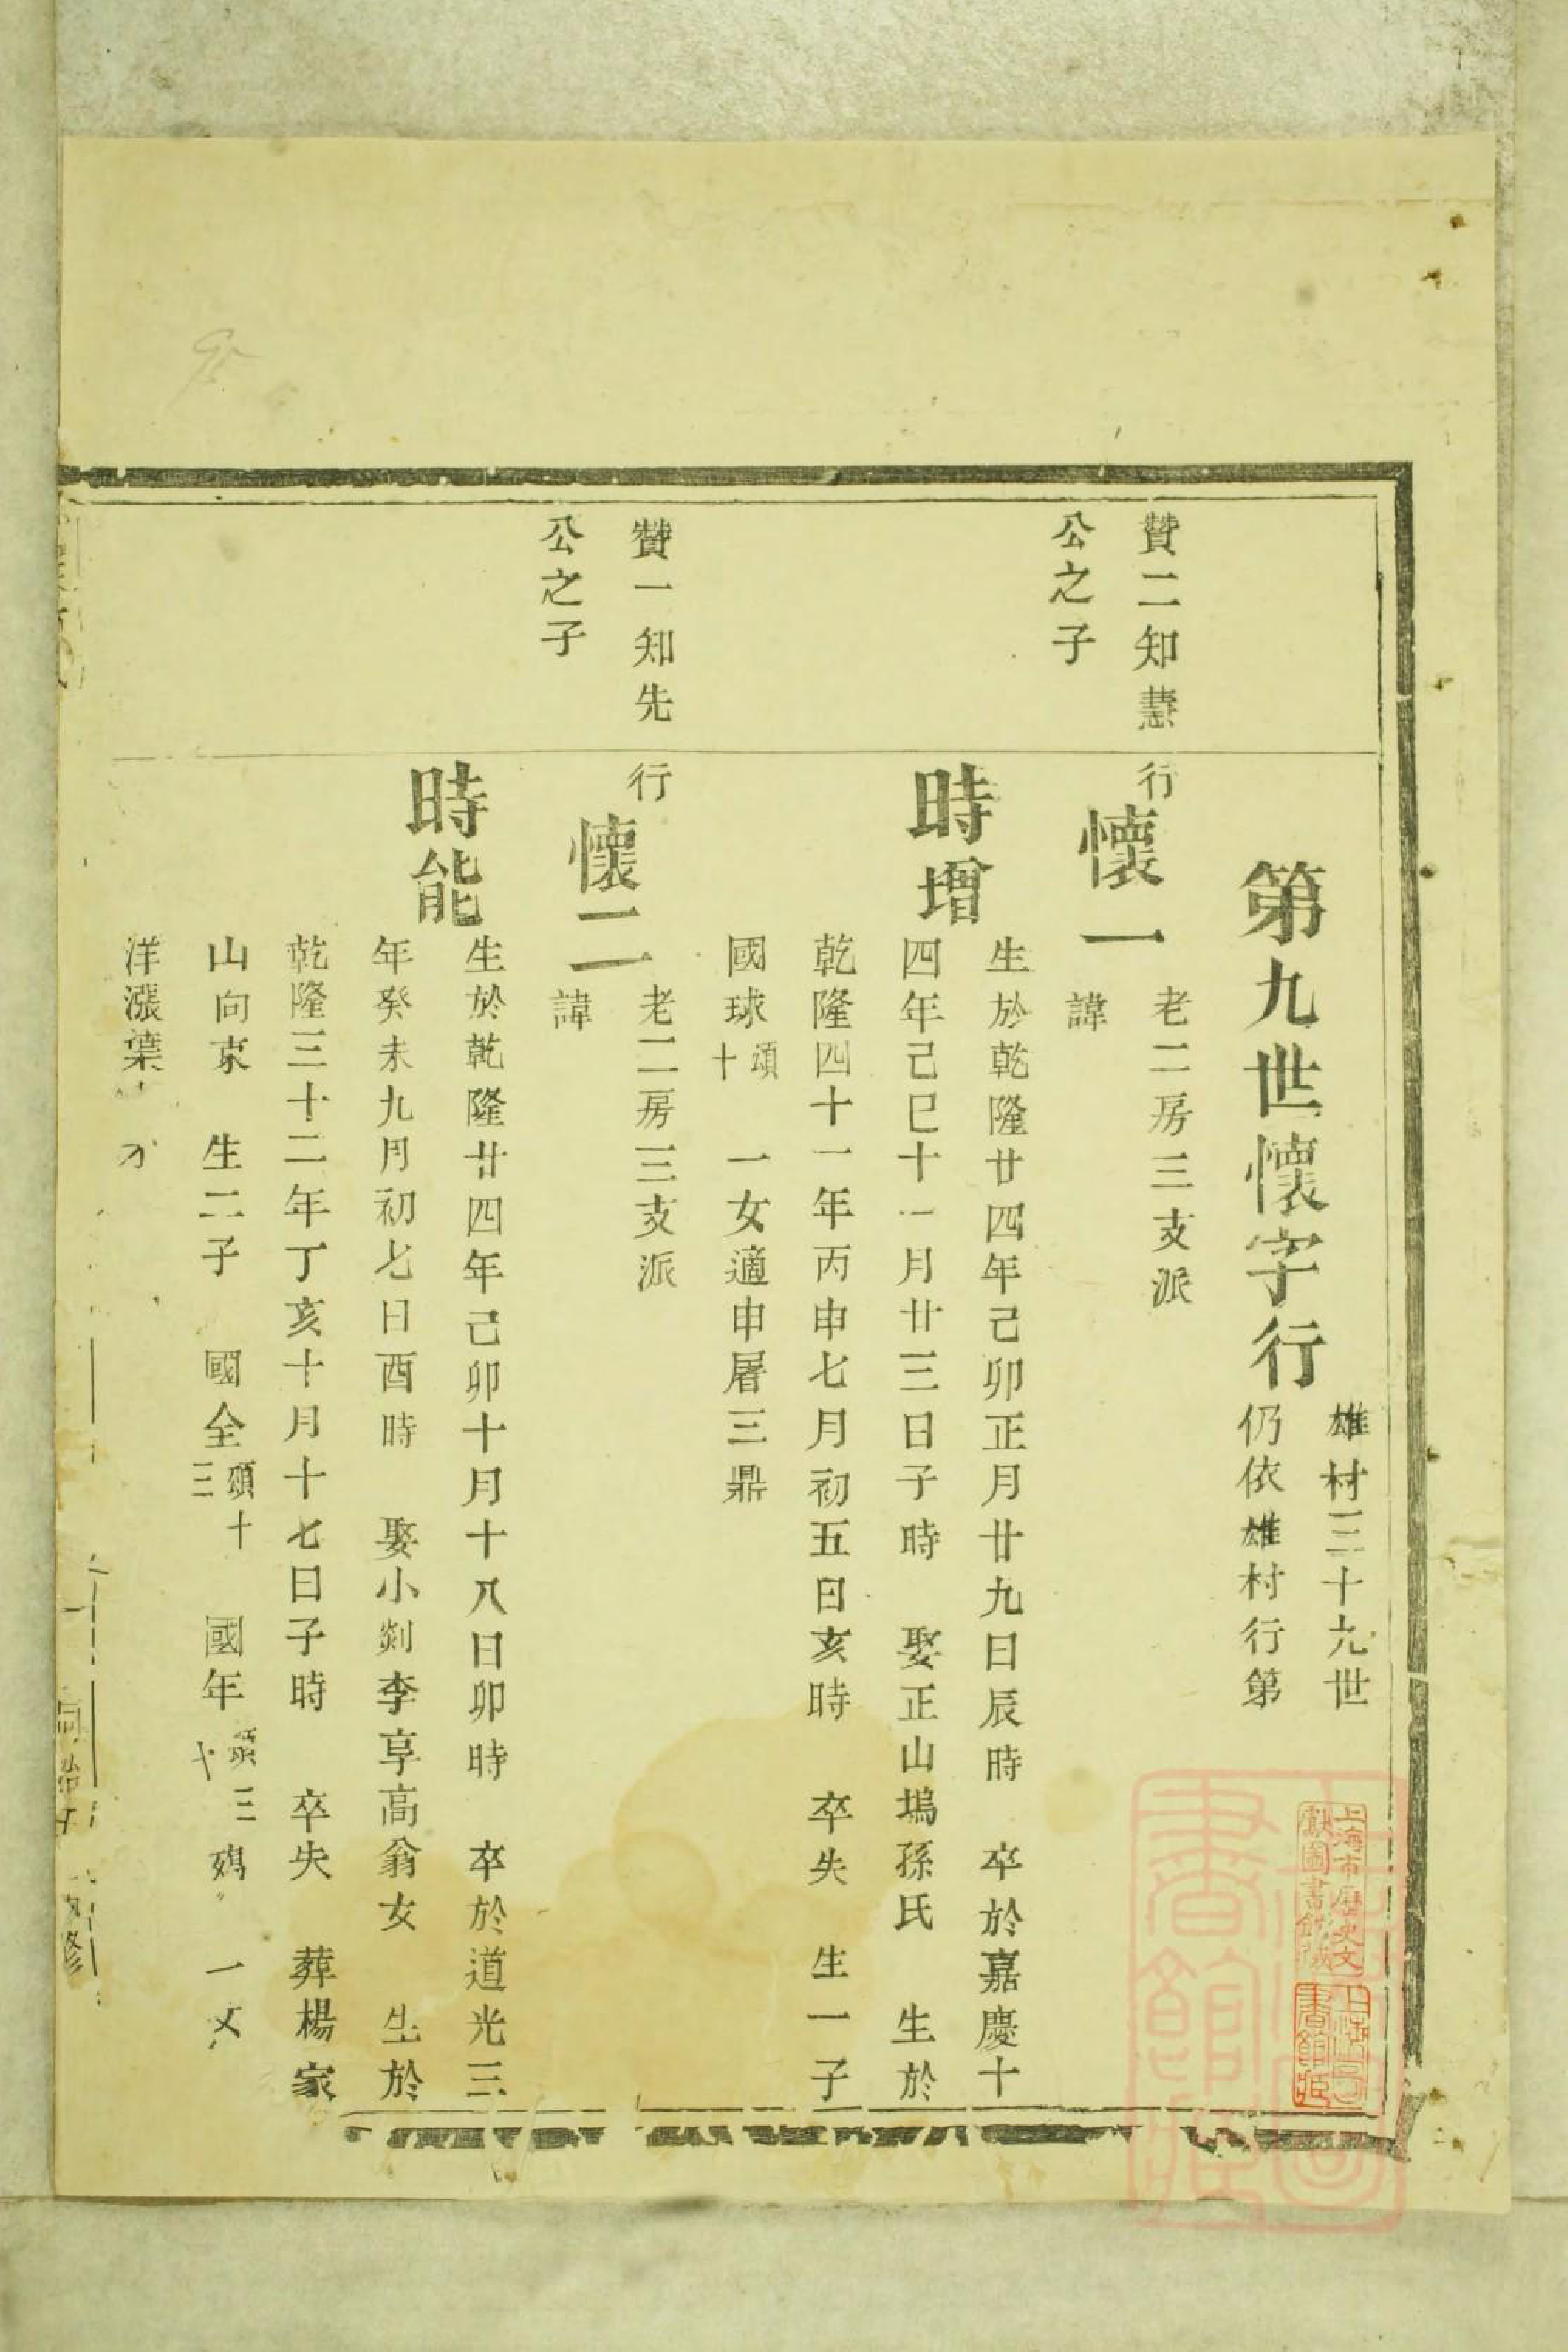 第九世懷字行
雄村三十九世
仍依雄村行第
贊二知慧
公之子
行
懷一
老二房三支派
諱
時增
生於乾隆廿四年己卯正月廿九日辰時 卒於嘉慶十
四年己巳十一月廿三日子時 娶正山塢孫氏 生於
乾隆四十一年丙申七月初五日亥時 卒失 生一子
國球頌十 一女適申屠三鼎
贊一知先
公之子
行
懷二
老二房三支派
諱
時能
生於乾隆廿四年己卯十月十八日卯時 卒於道光三
年癸未九月初七日酉時 娶小剡李享高翁女 生於
乾隆三十二年丁亥十月十七日子時 卒失 葬楊家
山向東 生二子 國全頌十三 國年 一
洋漲葉
修
上海市歷史文
獻圖書館藏
上海圖
書館藏